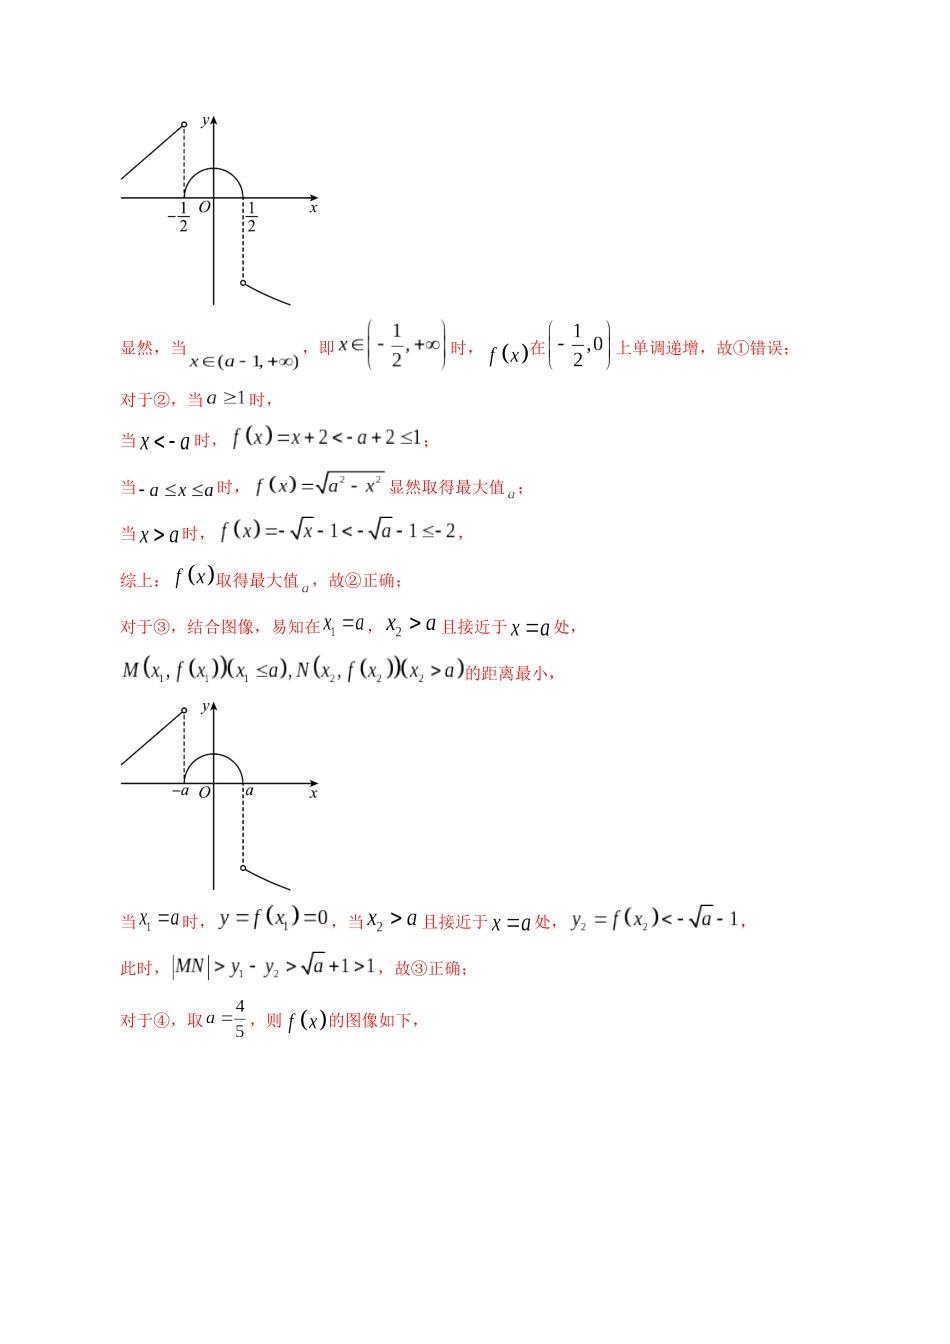 y
O
x
-1/2
1/2
显然，当x∈(a-1,+∞)，即x∈(-1/2,+∞)时，f(x)在(-1/2,0)上单调递增，故①错误；
对于②，当a≥1时，
当x<-a时，f(x)=x+2<-a+2≤1；
当-a≤x≤a时，f(x)=√(a²-x²)显然取得最大值a；
当x>a时，f(x)=-√x-1<-√a-1≤-2，
综上：f(x)取得最大值a，故②正确；
对于③，结合图像，易知在x₁=a，x₂>a且接近于x=a处，
M(x₁,f(x₁))(x₁≤a),N(x₂,f(x₂))(x₂>a)的距离最小，
y
-a
O
a
x
当x₁=a时，y=f(x₁)=0，当x₂>a且接近于x=a处，y₂=f(x₂)<-√a-1，
此时，|MN|>y₁-y₂>√a+1>1，故③正确；
对于④，取a=4/5，则f(x)的图像如下，